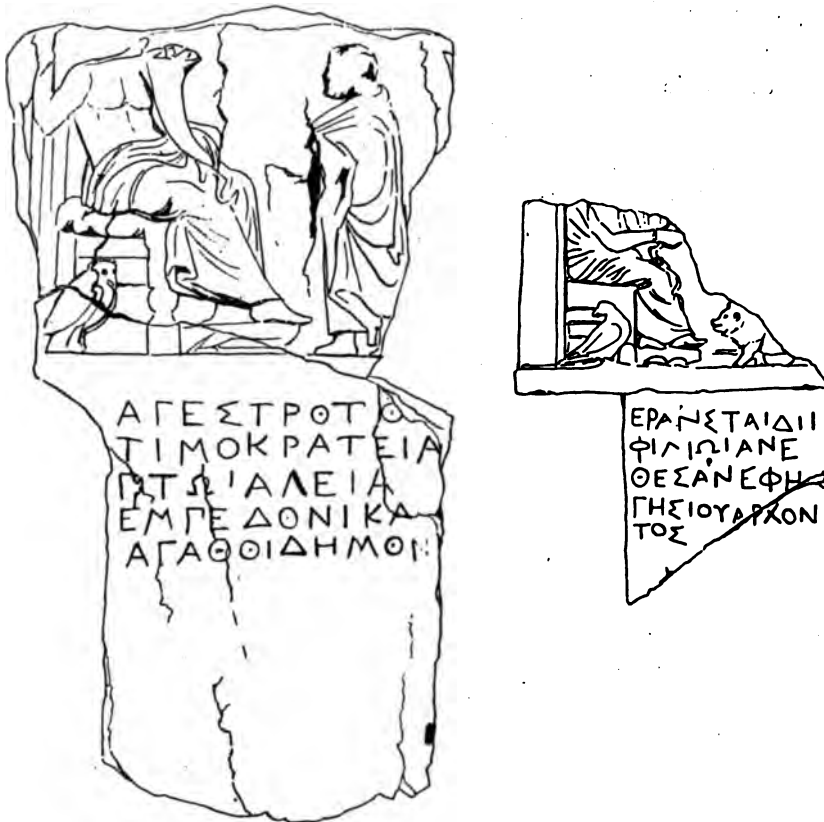 ΑΓΕΣΤΡΟΤΟ
ΤΙΜΟΚΡΑΤΕΙΑ
ΠΤΩΙΑΛΕΙΑ
ΕΜΠΕΔΟΝΙΚΑ
ΑΓΑΘΟΙΔΗΜΟΝ
ΕΡΑΝΣΤΑΙΔΙΙ
ΦΙΛΙΩΙΑΝΕ
ΘΕΣΑΝΕΦΗ
ΓΗΣΙΟΥΑΡΧΟΝ
ΤΟΣ